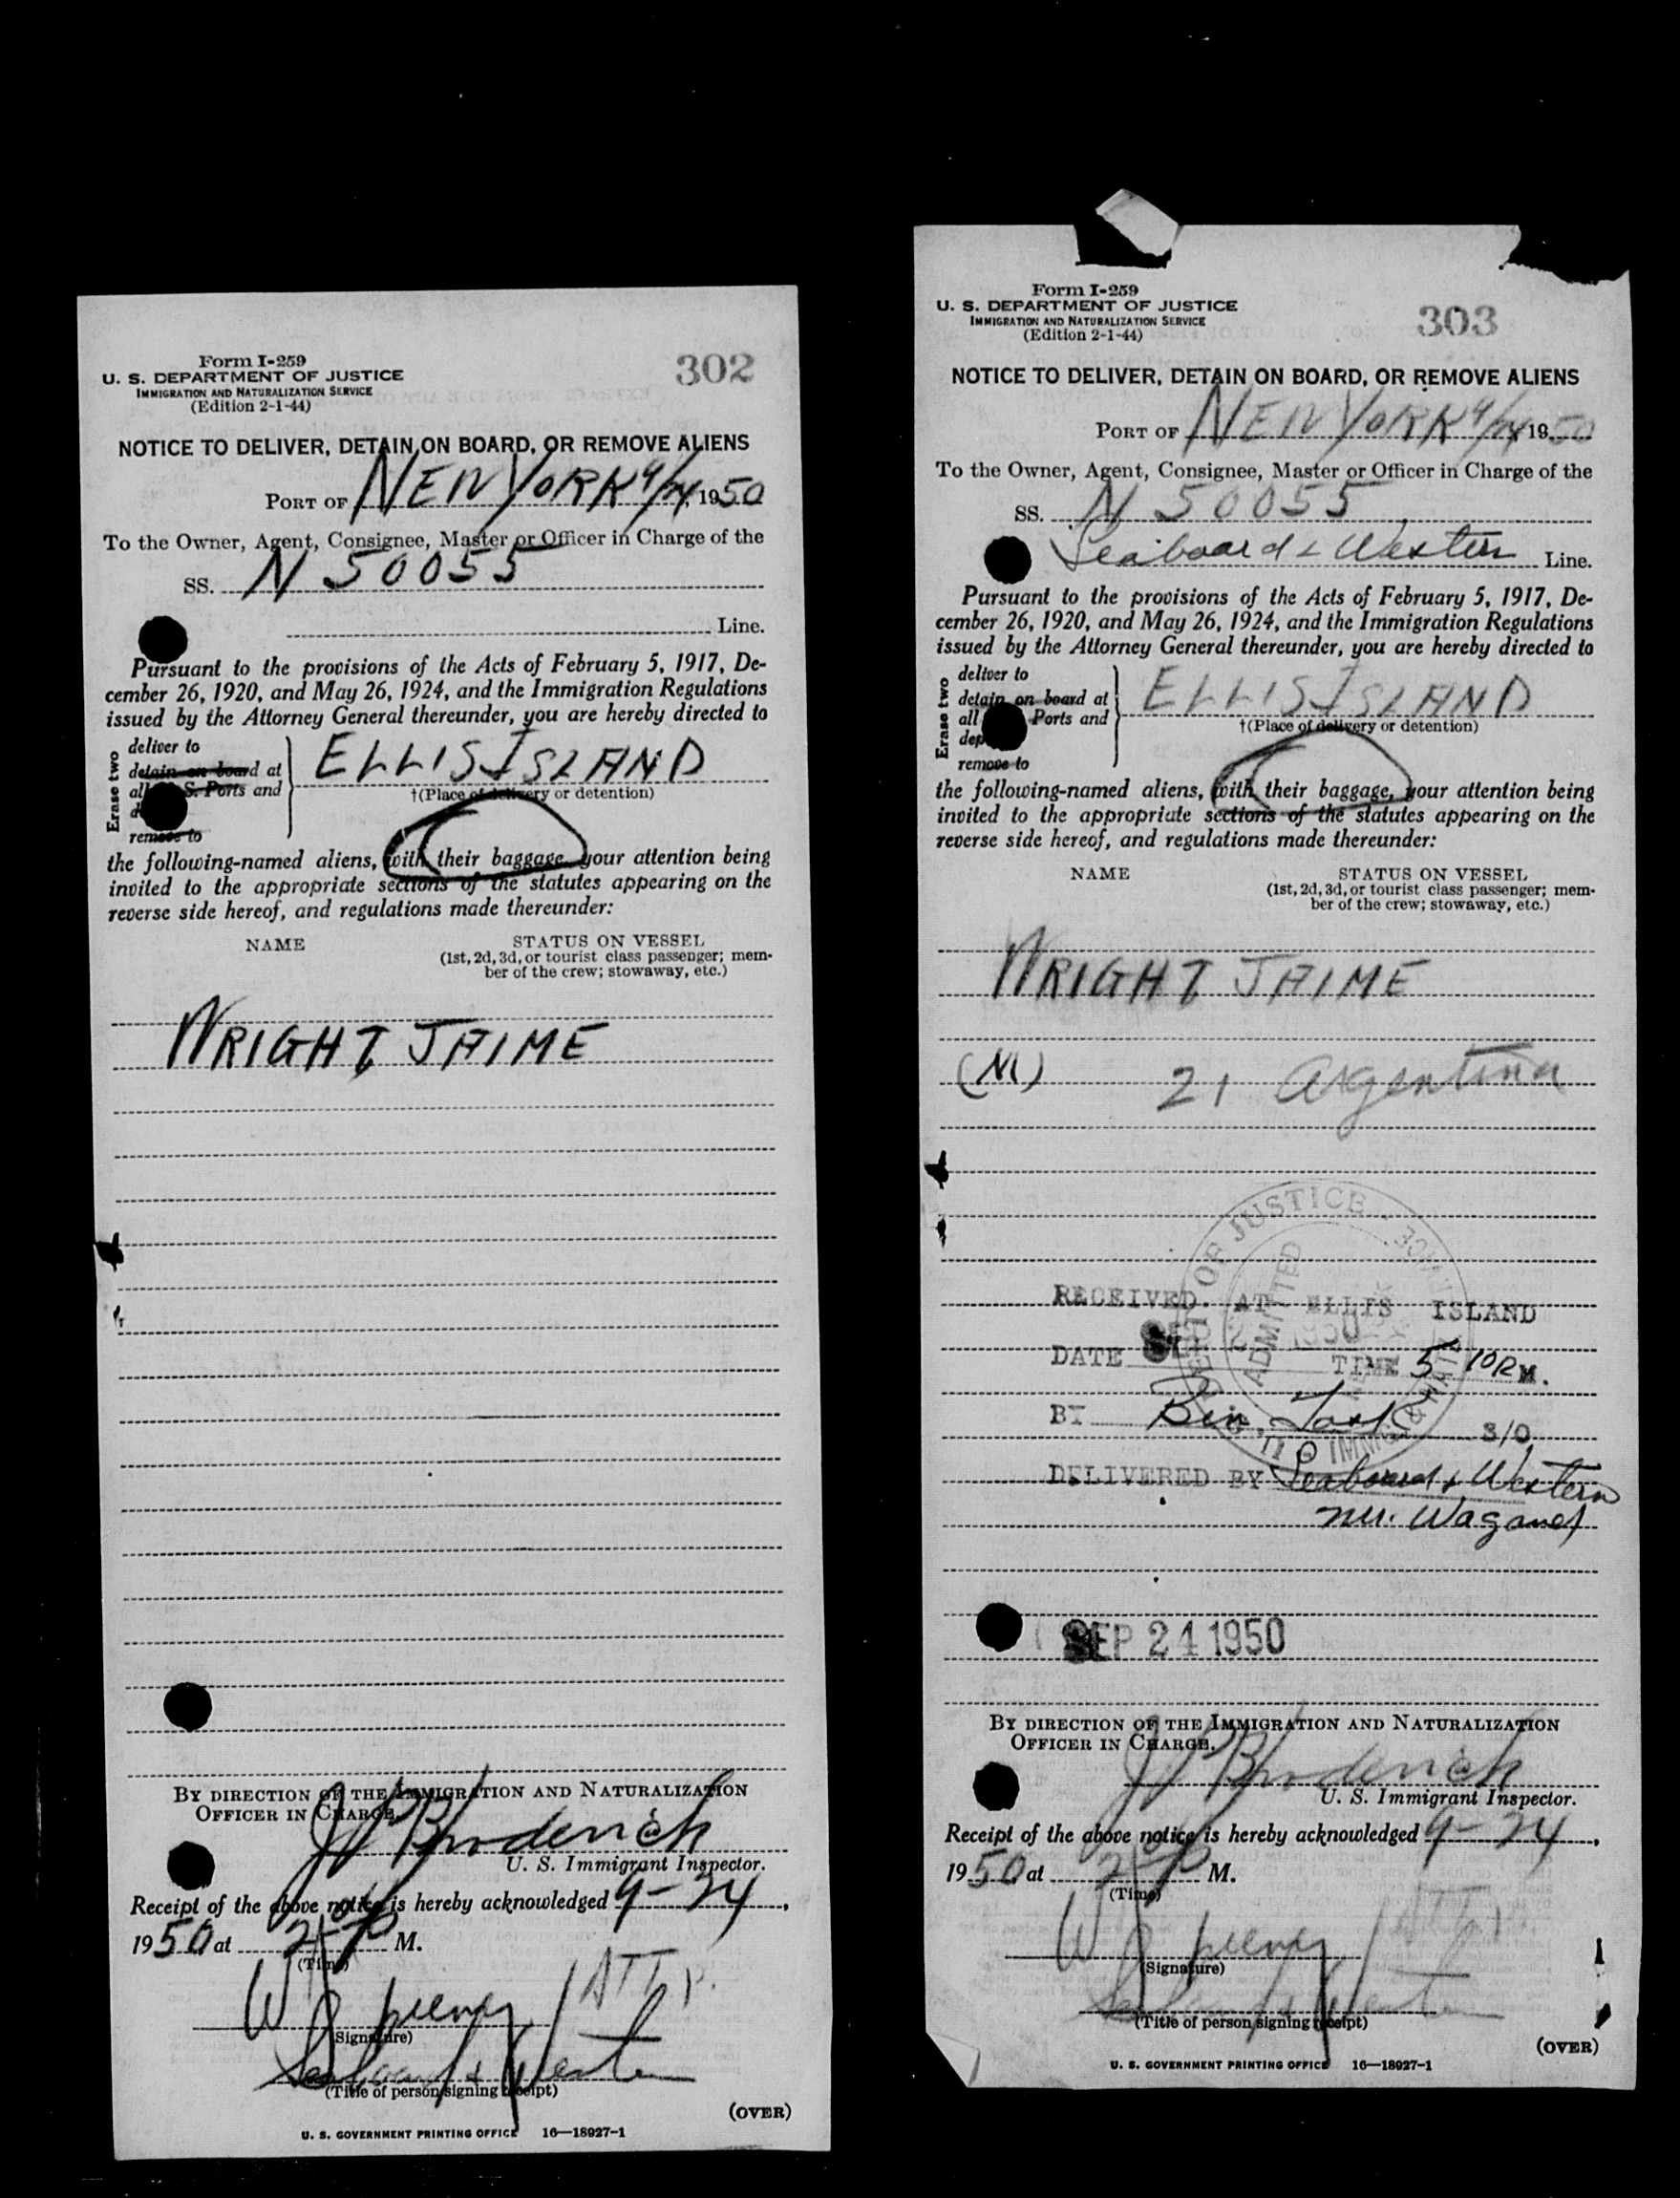 Form I-259
U. S. DEPARTMENT OF JUSTICE
IMMIGRATION AND NATURALIZATION SERVICE
(Edition 2-1-44)
302
NOTICE TO DELIVER, DETAIN ON BOARD, OR REMOVE ALIENS
PORT OF NEW YORK 9/24, 1950
To the Owner, Agent, Consignee, Master or Officer in Charge of the
SS. N 50055
Line.
Pursuant to the provisions of the Acts of February 5, 1917, De-
cember 26, 1920, and May 26, 1924, and the Immigration Regulations
issued by the Attorney General thereunder, you are hereby directed to
Erase two
deliver to
detain on board at
all S. Ports and
remove to
ELLIS ISLAND
†(Place of delivery or detention)
the following-named aliens, with their baggage, your attention being
invited to the appropriate sections of the statutes appearing on the
reverse side hereof, and regulations made thereunder:
NAME
STATUS ON VESSEL
(1st, 2d, 3d, or tourist class passenger; mem-
ber of the crew; stowaway, etc.)
WRIGHT JAIME
BY DIRECTION OF THE IMMIGRATION AND NATURALIZATION
OFFICER IN CHARGE.
J P Broderick
U. S. Immigrant Inspector.
Receipt of the above notice is hereby acknowledged 9-24,
1950 at 2 P M.
(Time)
W
(Signature)
Seaboard & Western
(Title of person signing receipt)
(OVER)
U. S. GOVERNMENT PRINTING OFFICE 16—18927-1
Form I-259
U. S. DEPARTMENT OF JUSTICE
IMMIGRATION AND NATURALIZATION SERVICE
(Edition 2-1-44)
303
NOTICE TO DELIVER, DETAIN ON BOARD, OR REMOVE ALIENS
PORT OF NEW YORK 9/24 1950
To the Owner, Agent, Consignee, Master or Officer in Charge of the
SS. N 50055
Seaboard & Western Line.
Pursuant to the provisions of the Acts of February 5, 1917, De-
cember 26, 1920, and May 26, 1924, and the Immigration Regulations
issued by the Attorney General thereunder, you are hereby directed to
Erase two
deliver to
detain on board at
all Ports and
remove to
ELLIS ISLAND
†(Place of delivery or detention)
the following-named aliens, with their baggage, your attention being
invited to the appropriate sections of the statutes appearing on the
reverse side hereof, and regulations made thereunder:
NAME
STATUS ON VESSEL
(1st, 2d, 3d, or tourist class passenger; mem-
ber of the crew; stowaway, etc.)
WRIGHT JAIME
(M) 21 Argentina
OF JUSTICE
ADMITTED
RECEIVED AT ELLIS ISLAND
DATE TIME 5 10 P M.
BY Ben S/O
DELIVERED BY Seaboard & Western
Mr. Wagoner
SEP 24 1950
BY DIRECTION OF THE IMMIGRATION AND NATURALIZATION
OFFICER IN CHARGE.
J P Broderick
U. S. Immigrant Inspector.
Receipt of the above notice is hereby acknowledged 9-24,
1950 at 2 P M.
(Time)
W
(Signature)
Seaboard & Western
(Title of person signing receipt)
(OVER)
U. S. GOVERNMENT PRINTING OFFICE 16—18927-1